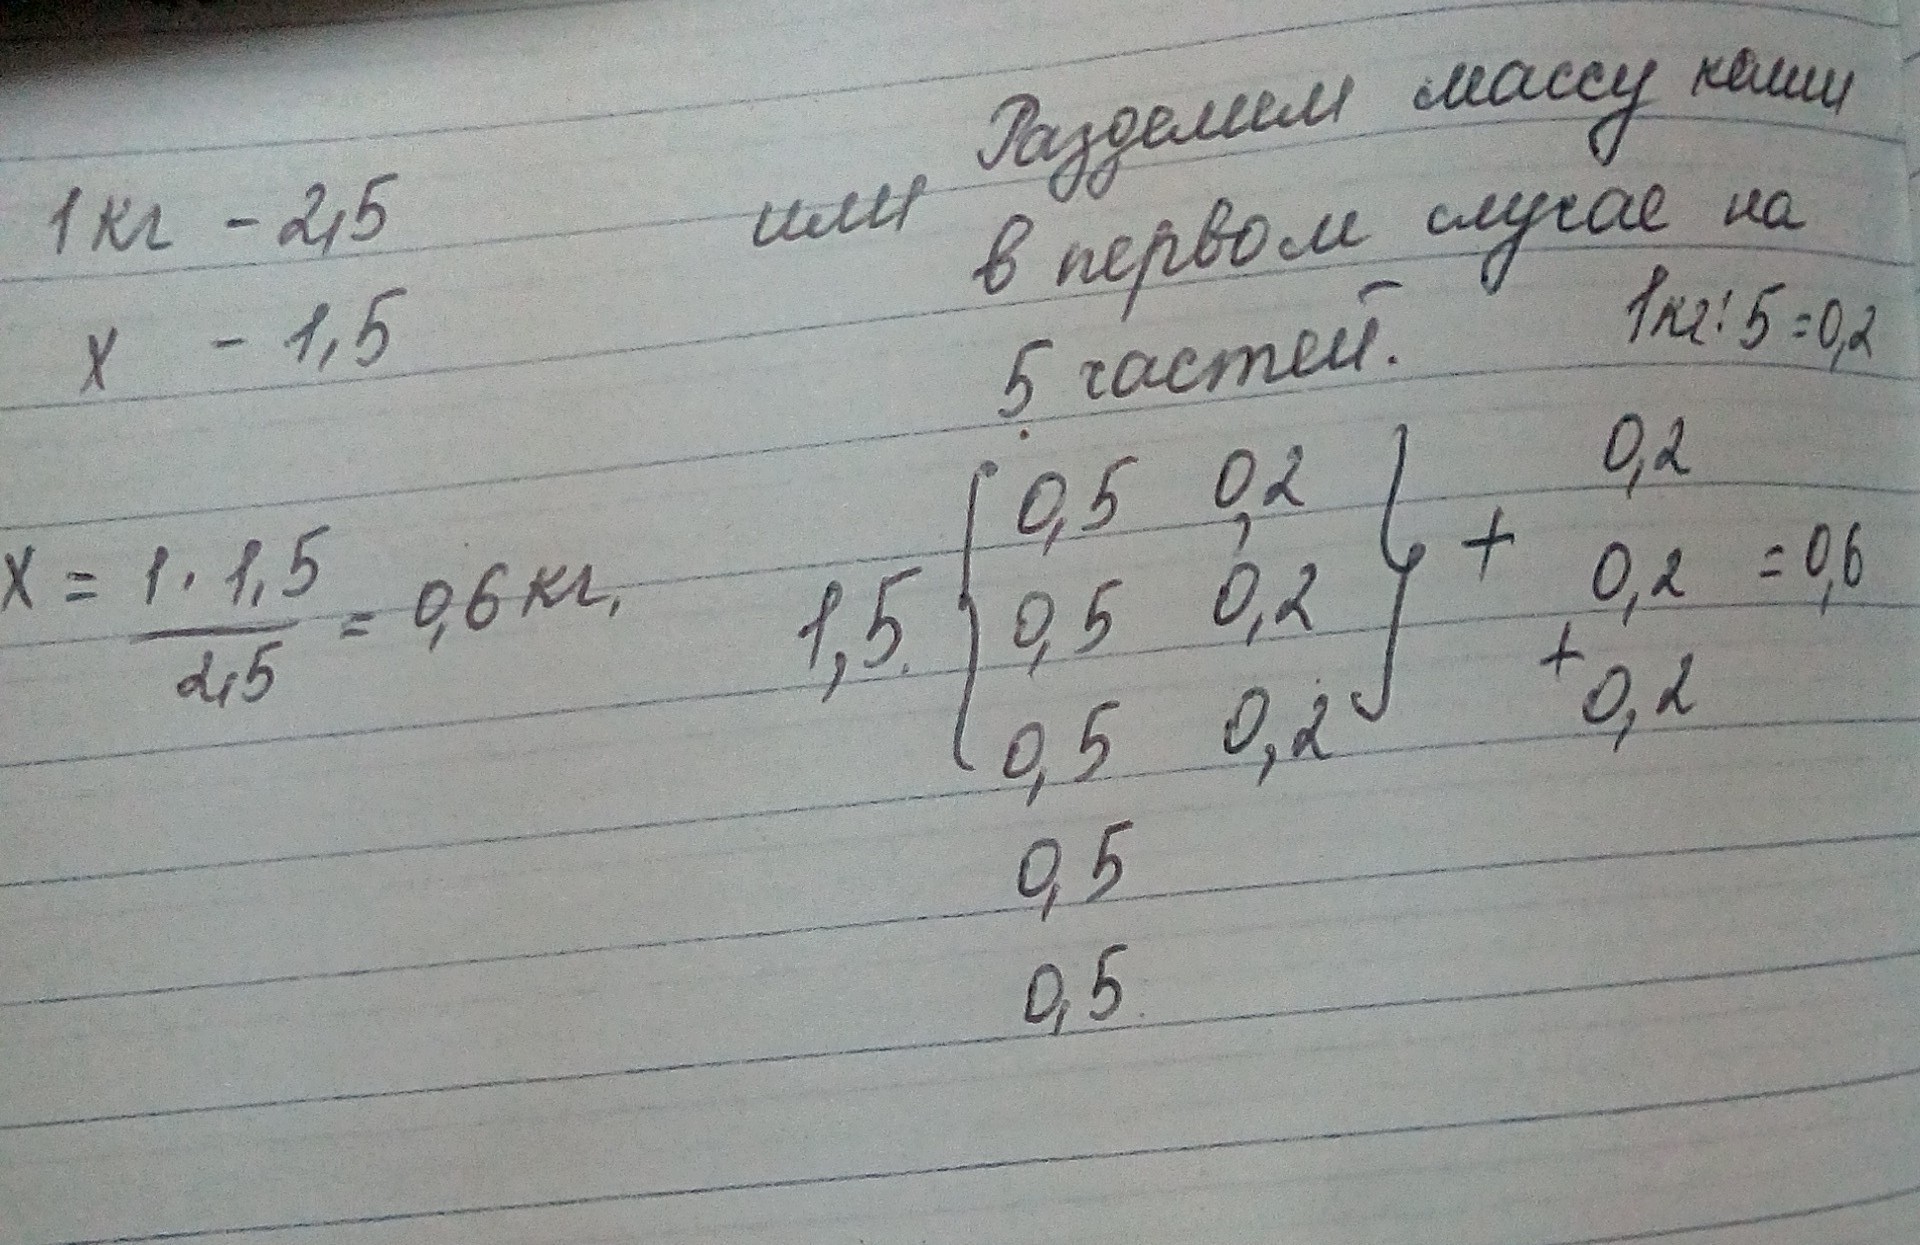 1кг - 2,5
х - 1,5
х = 1 · 1,5 / 2,5 = 0,6 кг.
или
Разделим массу каши
в первом случае на
5 частей. 1кг : 5 = 0,2
1,5 { 0,5 0,2 } + 0,2
0,5 0,2 0,2 = 0,6
0,5 0,2 + 0,2
0,5
0,5